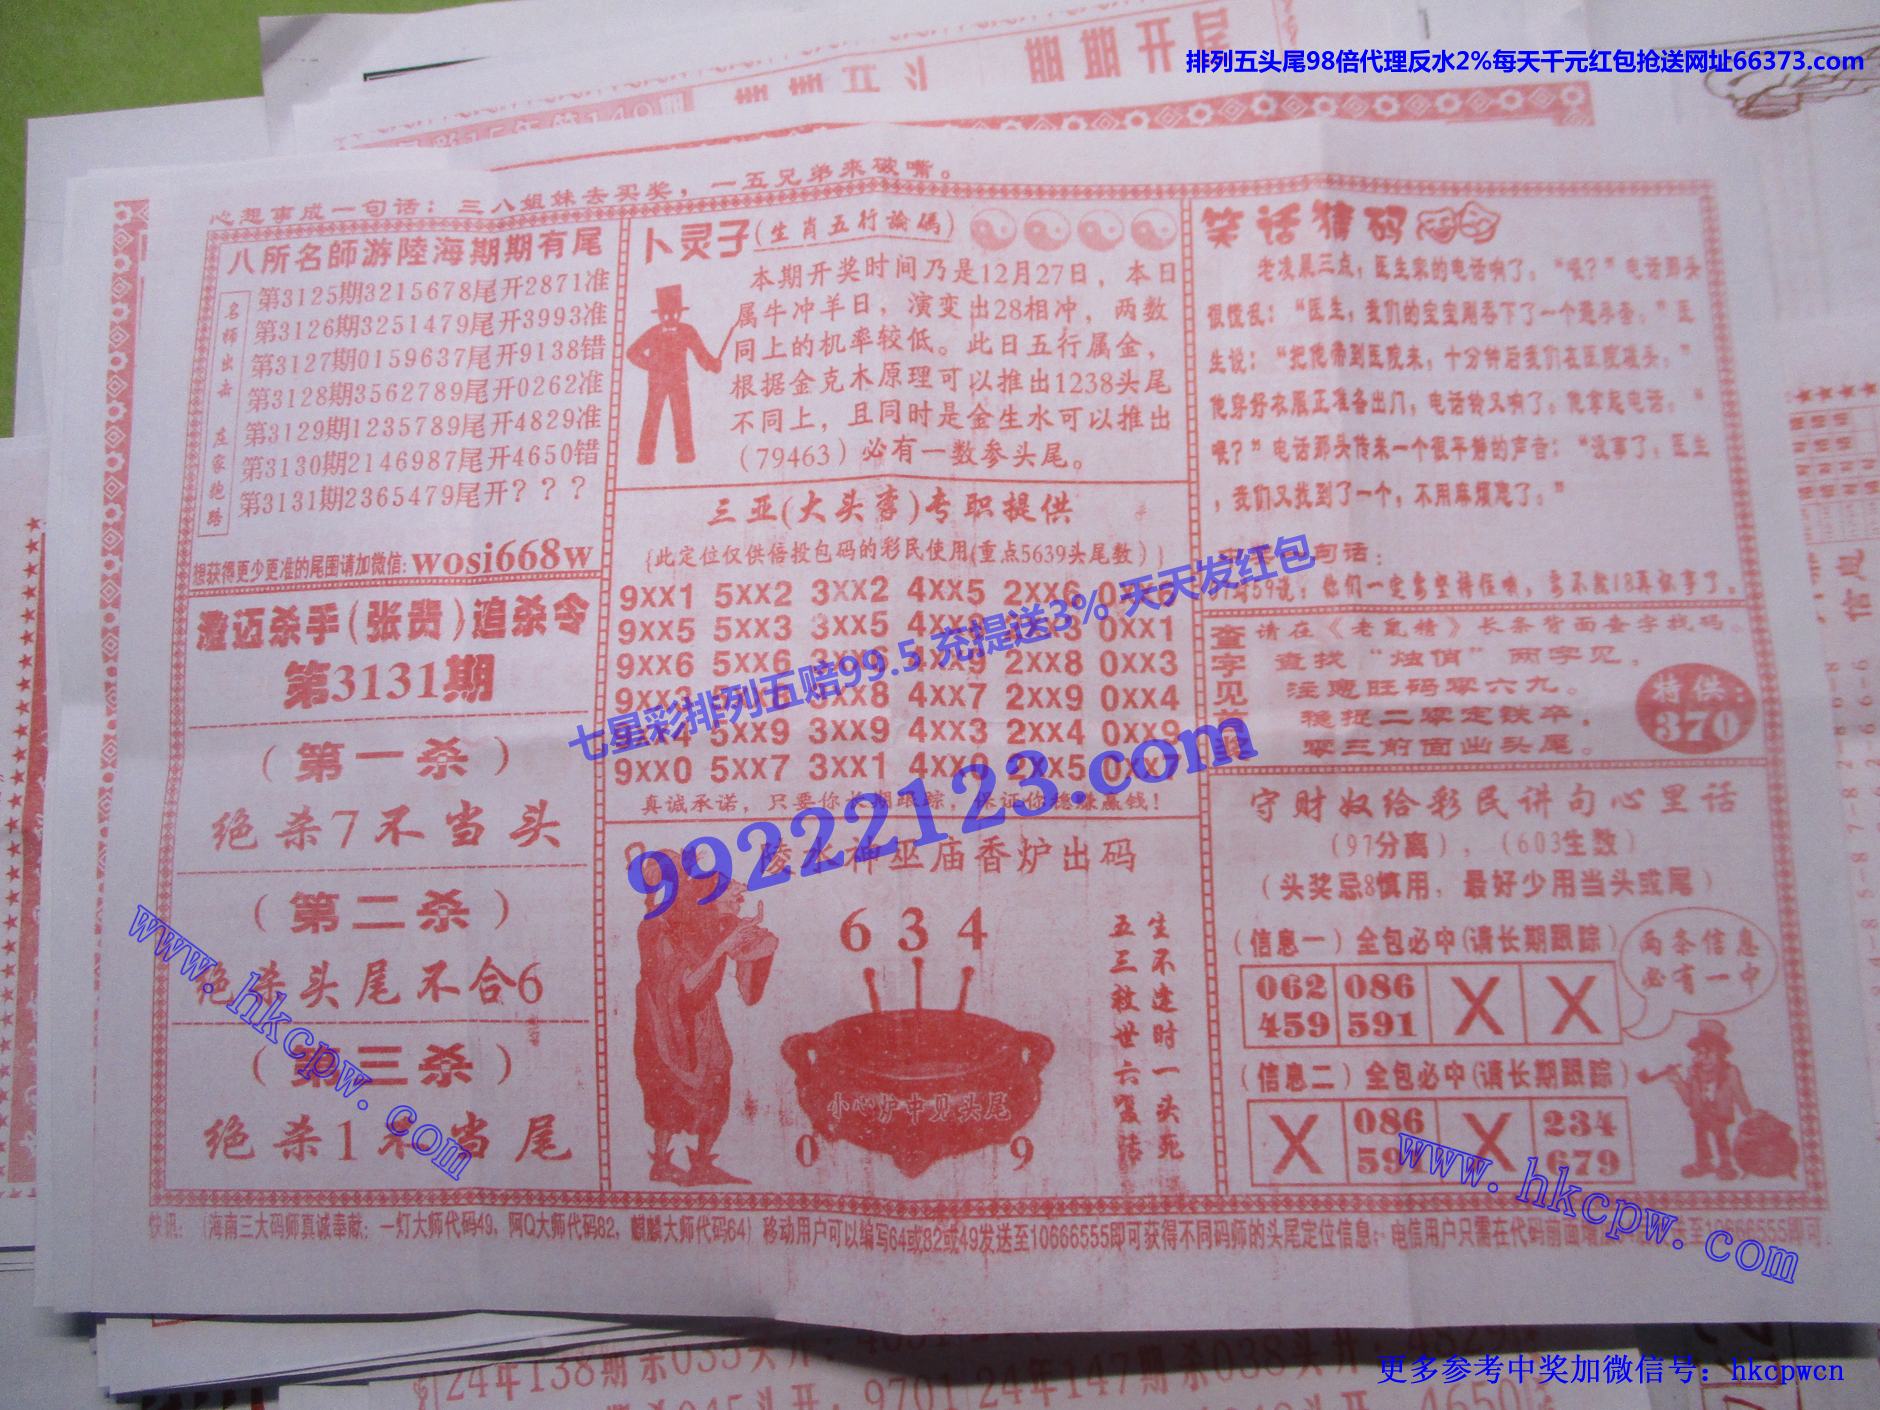 排列五头尾98倍代理反水2%每天千元红包抢送网址66373.com
期期开
心想事成一句话：三八姐妹去买奖，一五兄弟来破嘴。
八所名師游陸海期期有尾
名师出击 庄家跑路
第3125期3215678尾开2871准
第3126期3251479尾开3993准
第3127期0159637尾开9138错
第3128期3562789尾开0262准
第3129期1235789尾开4829准
第3130期2146987尾开4650错
第3131期2365479尾开？？？
想获得更少更准的尾围请加微信:wosi668w
澄迈杀手(张贵)追杀令
第3131期
(第一杀)
绝杀7不当头
(第二杀)
绝杀头尾不合6
(第三杀)
绝杀1不当尾
卜灵子(生肖五行論碼)
本期开奖时间乃是12月27日，本日
属牛冲羊日，演变出28相冲，两数
同上的机率较低。此日五行属金，
根据金克木原理可以推出1238头尾
不同上，且同时是金生水可以推出
(79463)必有一数参头尾。
三亚(大头李)专职提供
{此定位仅供倍投包码的彩民使用(重点5639头尾数)}
9XX1 5XX2 3XX2 4XX5 2XX6
9XX5 5XX3 3XX5 0XX1
9XX6 5XX6 2XX8 0XX3
4XX7 2XX9 0XX4
5XX9 3XX9 4XX3 2XX4 0XX9
9XX0 5XX7 3XX1 2XX5 0XX7
真诚承诺，只要你长期跟踪，保证你稳赚赢钱！
陵水神巫庙香炉出码
6 3 4
生不逢时一头死
五三救世六复活
小心炉中见头尾
0 9
笑话猜码
老凌晨三点，医生家的电话响了。“喂？”电话那头
很慌乱：“医生，我们的宝宝刚吞下了一个避孕套。”医
生说：“把他带到医院来，十分钟后我们在医院碰头。”
他穿好衣服正准备出门，电话铃又响了。他拿起电话。“
喂？”电话那头传来一个很平静的声音：“没事了，医生
，我们又找到了一个，不用麻烦您了。”
句话：
他们一定要坚持住哦，
查字见
请在《老鼠精》长条背面查字找码。
查找“烛俏”两字见，
注意旺码零六九。
稳捉二零定铁卒，
零三前面出头尾。
特供：
370
守财奴给彩民讲句心里话
(97分离)，(603生数)
(头奖忌8慎用，最好少用当头或尾)
(信息一)全包必中(请长期跟踪)
062 086 X X
459 591
两条信息
必有一中
(信息二)全包必中(请长期跟踪)
X 086 X 234
591 679
快讯：(海南三大码师真诚奉献：一灯大师代码49，阿Q大师代码82，麒麟大师代码64)移动用户可以编写64或82或49发送至10666555即可获得不同码师的头尾定位信息；电信用户只需在代码前面
七星彩排列五赔99.5 充提送3% 天天发红包
99222123.com
www.hkcpw.com
www.hkcpw.com
24年138期杀035头开
24年147期杀038头开：4829
更多参考中奖加微信号：hkcpwcn